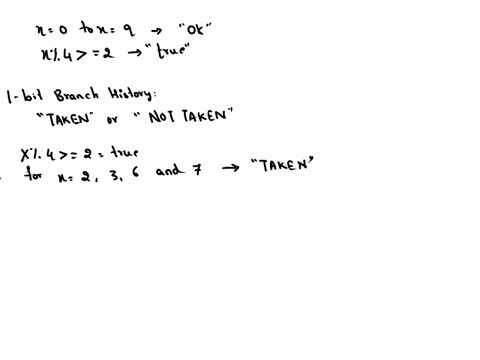 x=0 to x=9 → "Ok"
x%4>=2 → "true"
1-bit Branch History:
"TAKEN" or "NOT TAKEN"
X%4>=2 = true
for x=2, 3, 6 and 7 → "TAKEN"